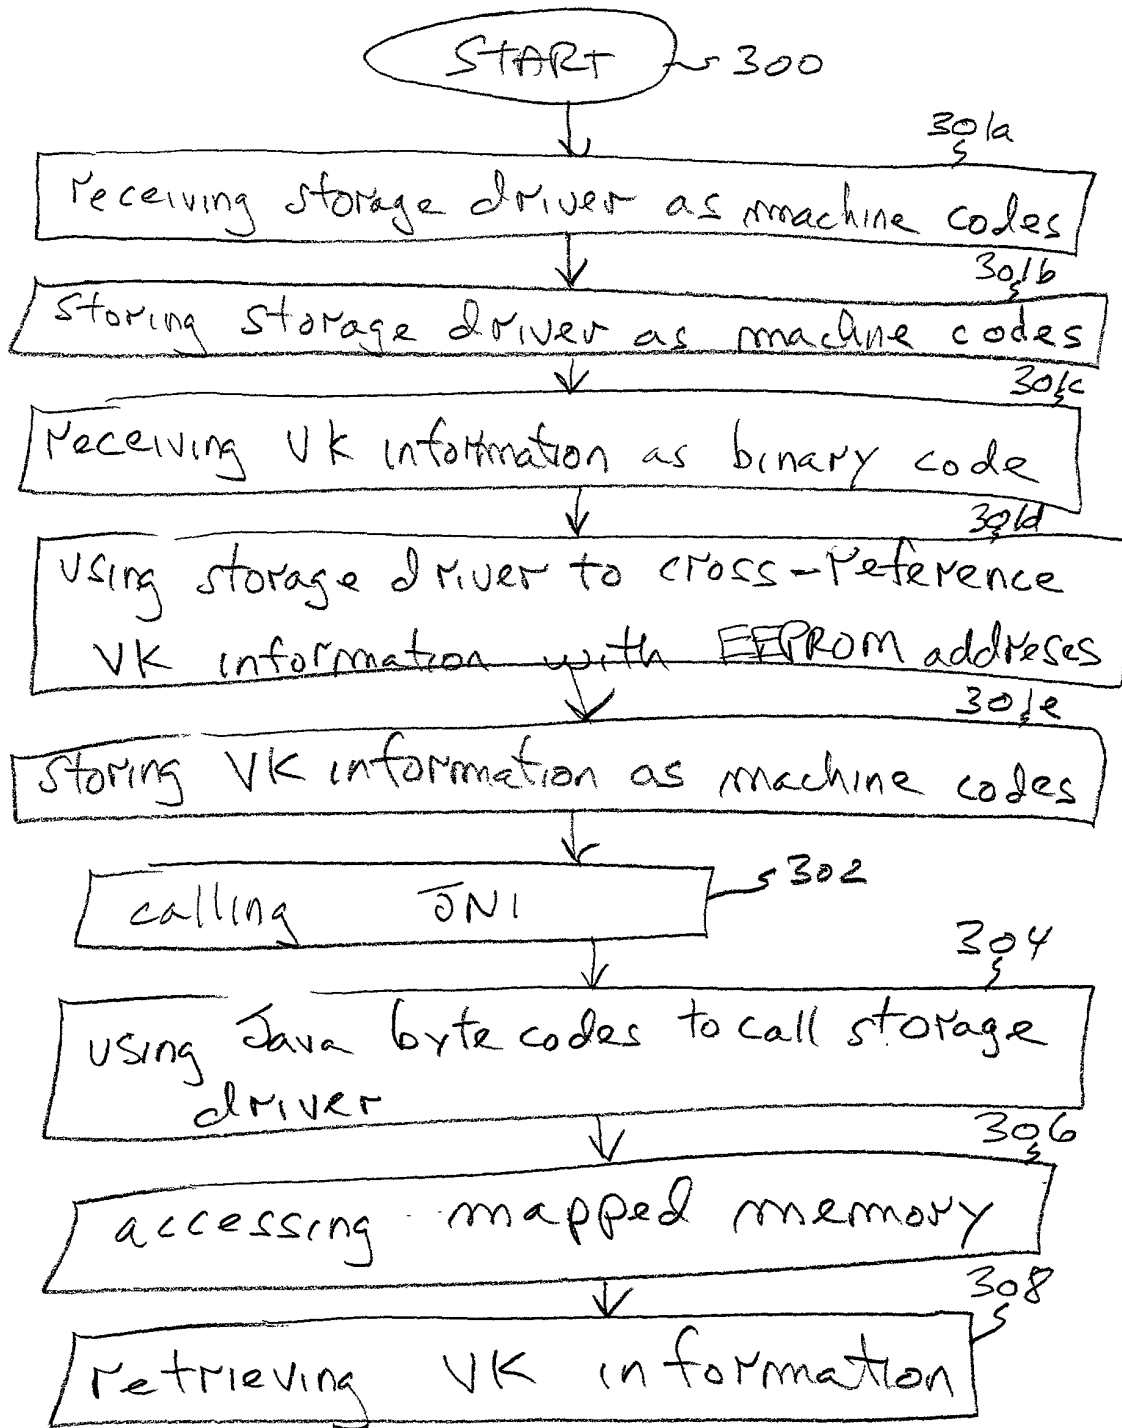 START 300
301a
receiving storage driver as machine codes
301b
storing storage driver as machine codes
301c
receiving VK information as binary code
301d
using storage driver to cross-reference
VK information with EEPROM addreses
301e
storing VK information as machine codes
calling JNI 302
304
using Java byte codes to call storage
driver
306
accessing mapped memory
308
retrieving VK information